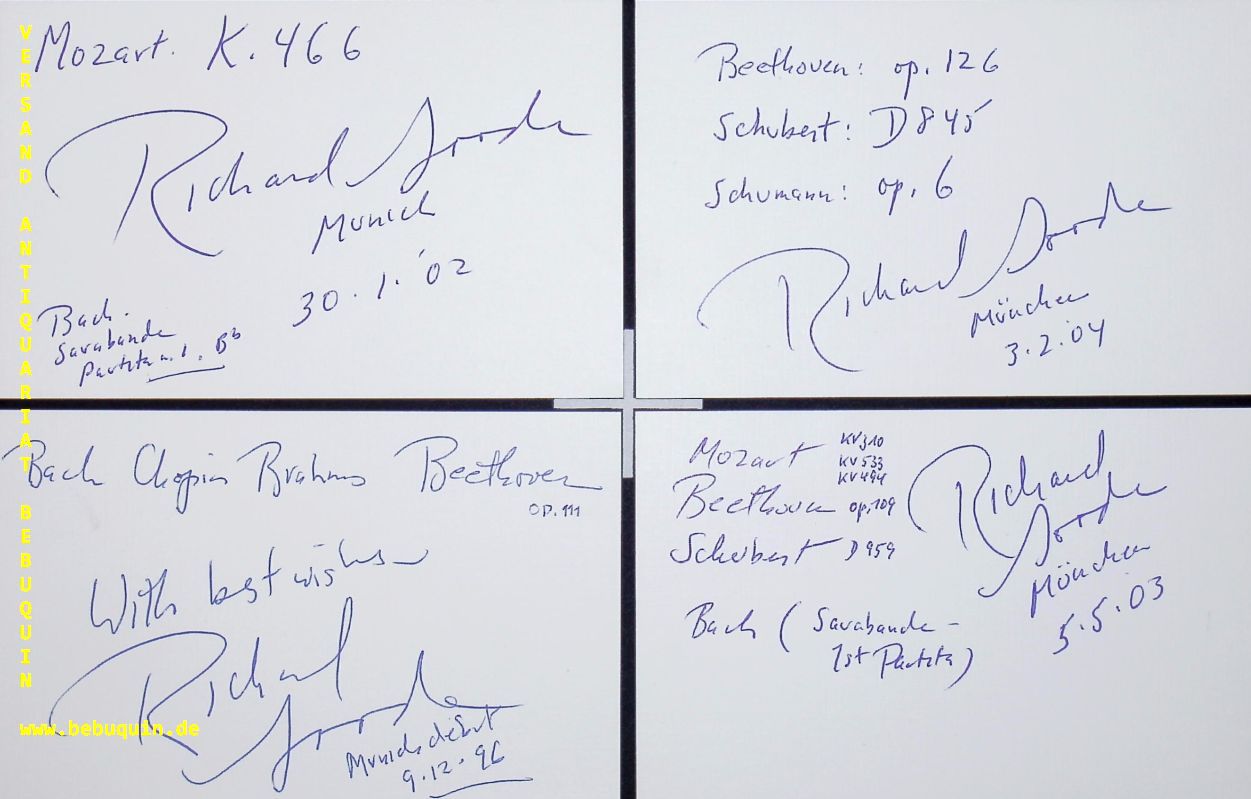 Mozart. K. 466
Richard Goode
Munich
30. 1. '02
Bach.
Sarabande
Partita n. 1. Bb
Beethoven: op. 126
Schubert: D 845
Schumann: op. 6
Richard Goode
München
3. 2. '04
Bach Chopin Brahms Beethoven
OP. 111
With best wishes
Richard
Goode
Munich debut
9. 12. 96
Mozart KV310
KV533
KV494
Beethoven op. 109
Schubert D959
Richard
Goode
München
5. 5. '03
Bach (Sarabande -
1st Partita)
VERSAND ANTIQUARIAT BEBUQUIN
www.bebuquin.de